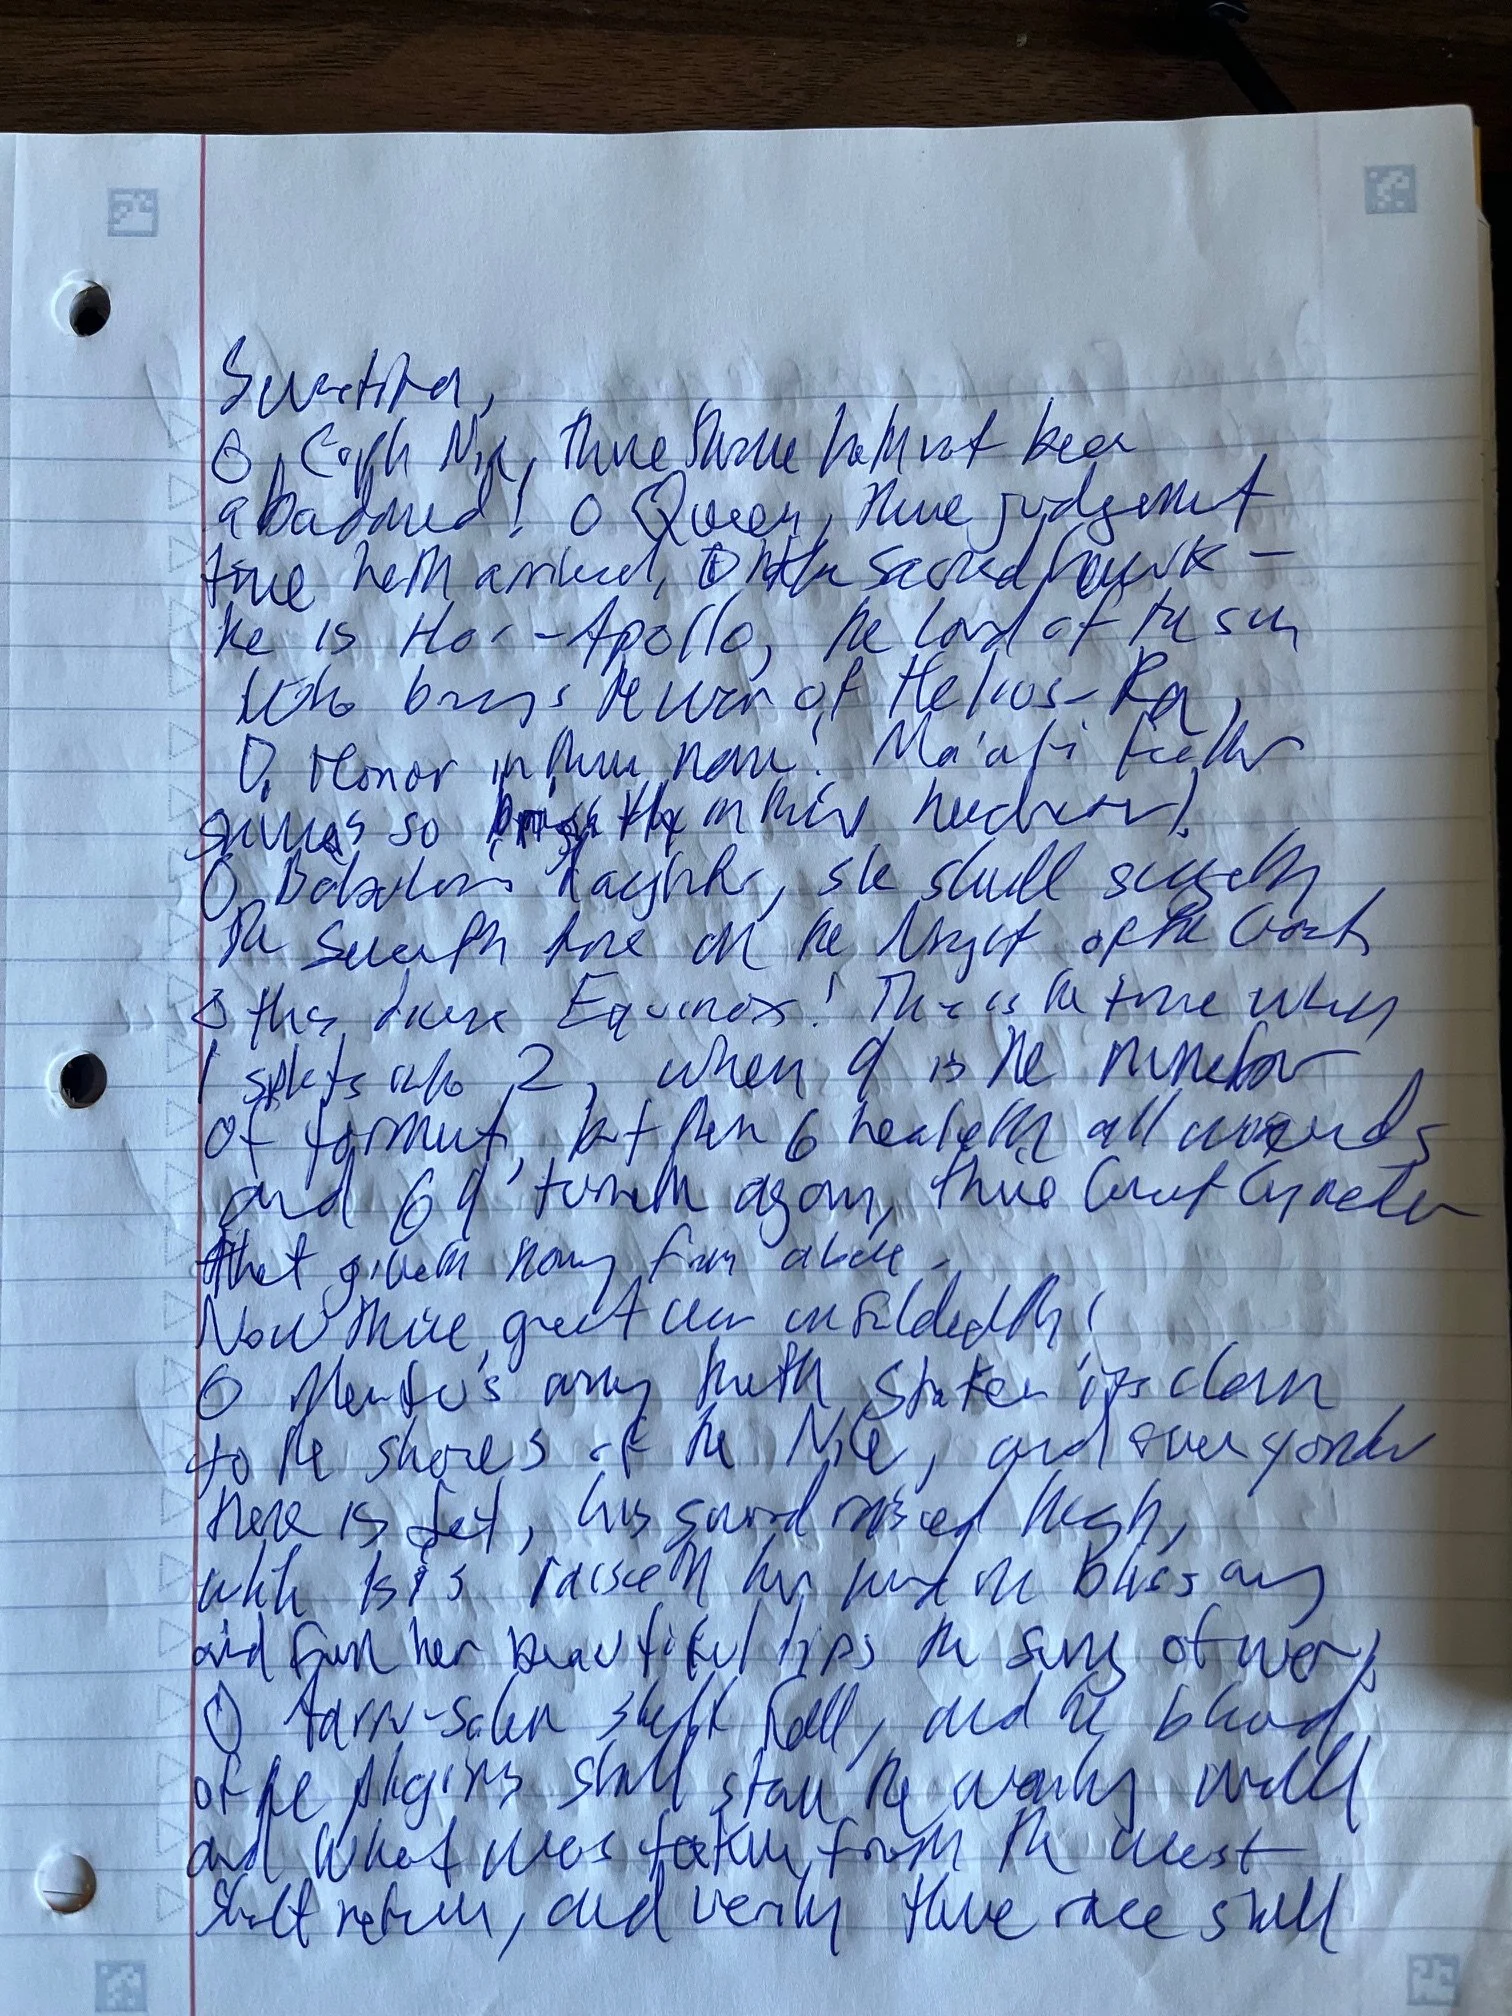 O, Nin, thine shrine hath not been
abadoned! O Queen, thine judgement
time hath arrived, O the sacred hawk -
he is Hor-Apollo, the lord of the sun
who brings the war of Helios-Ra,
O, Honor in thine name! Ma'ati
shines so brightly in this
O Babylon's daughter, she shall
the seventh time on the Night of the
this Equinox! This is the time when
1 splits into 2, when 9 is the number
of torment, but then 6 healeth all wounds
and 69 turneth again, thine Great
that giveth from above.
Now thine great war unfoldedth!
O Mentu's army hath staken its claim
to the shores of the Nile, and over yonder
there is Set, his sword raised high,
with Isis raiseth her in blissany
and from her beautiful lips the song of war,
O shalt fall, and the blood
of the pilgrims shall stain the wall
and what was taken from the west
shalt return, and verily thine race shall